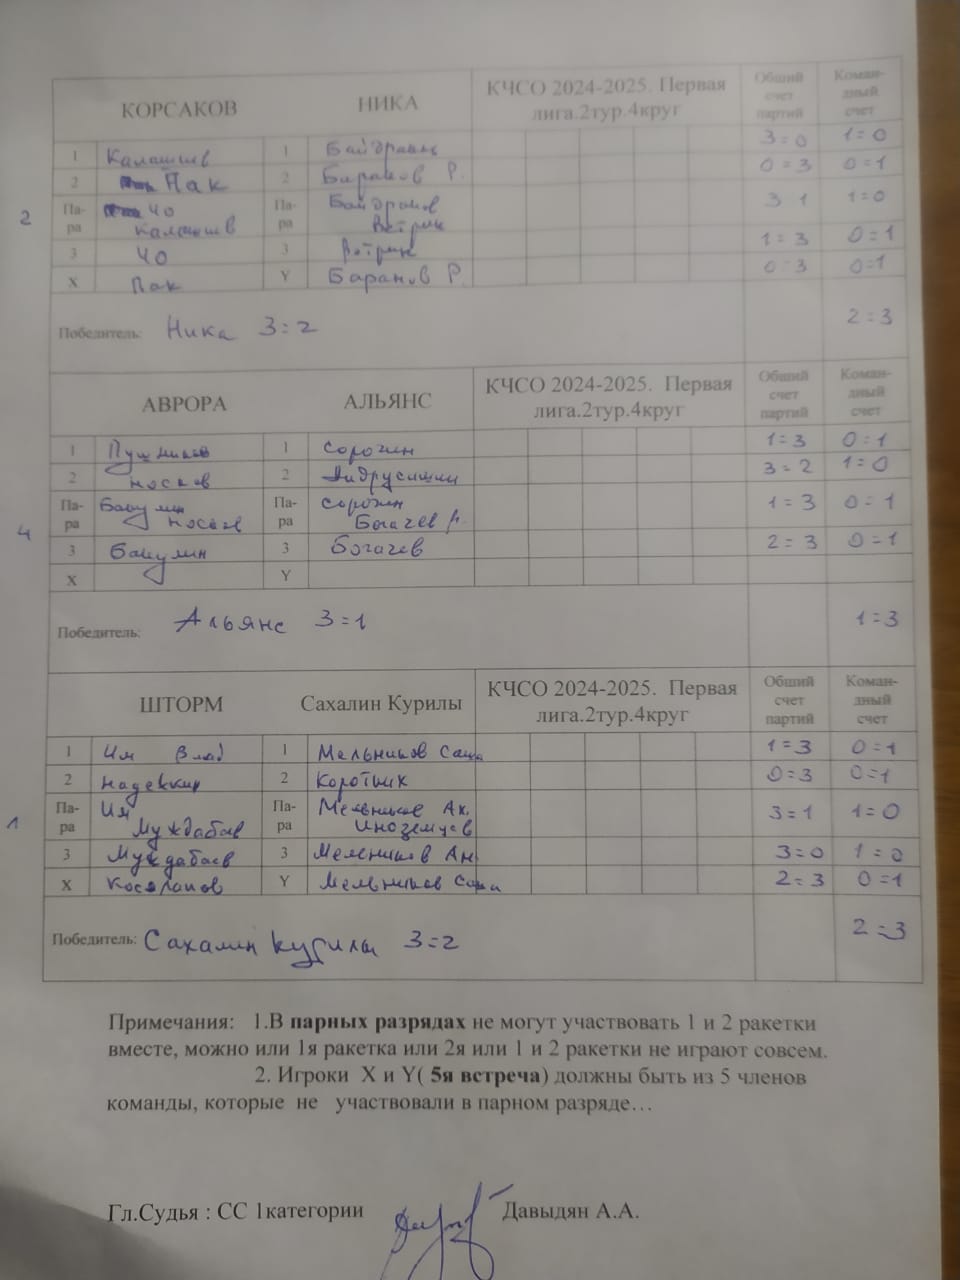 КОРСАКОВ НИКА КЧСО 2024-2025. Первая лига.2тур.4круг Общий счет партий Коман-дный счет
1 Калашнв 1 3=0 1=0
2 Пак 2 Баранов Р. 0=3 0=1
2 Па-ра Чо Па-ра 3 1 1=0
3 Чо 3 1=3 0=1
X Пак Y Баранов Р. 0=3 0=1
Победитель: Ника 3=2 2=3
АВРОРА АЛЬЯНС КЧСО 2024-2025. Первая лига.2тур.4круг Общий счет партий Коман-дный счет
1 Пушников 1 Сорочин 1=3 0=1
2 Носков 2 3=2 1=0
4 Па-ра Бакулин Носков Па-ра Сорочин Богачев 1=3 0=1
3 Бакулин 3 Богачев 2=3 0=1
X Y
Победитель: Альянс 3=1 1=3
ШТОРМ Сахалин Курилы КЧСО 2024-2025. Первая лига.2тур.4круг Общий счет партий Коман-дный счет
1 Им Влад 1 Мельников Саша 1=3 0=1
2 Надеккин 2 0=3 0=1
1 Па-ра Им Муждабаев Па-ра Мельников Ан. Иноземцев 3=1 1=0
3 Муждабаев 3 Мельников Ан 3=0 1=0
X Косолапов Y Мельников Саша 2=3 0=1
Победитель: Сахалин Курилы 3=2 2=3
Примечания: 1.В парных разрядах не могут участвовать 1 и 2 ракетки
вместе, можно или 1я ракетка или 2я или 1 и 2 ракетки не играют совсем.
2. Игроки X и Y( 5я встреча) должны быть из 5 членов
команды, которые не участвовали в парном разряде…
Гл.Судья : СС 1категории Давыдян А.А.